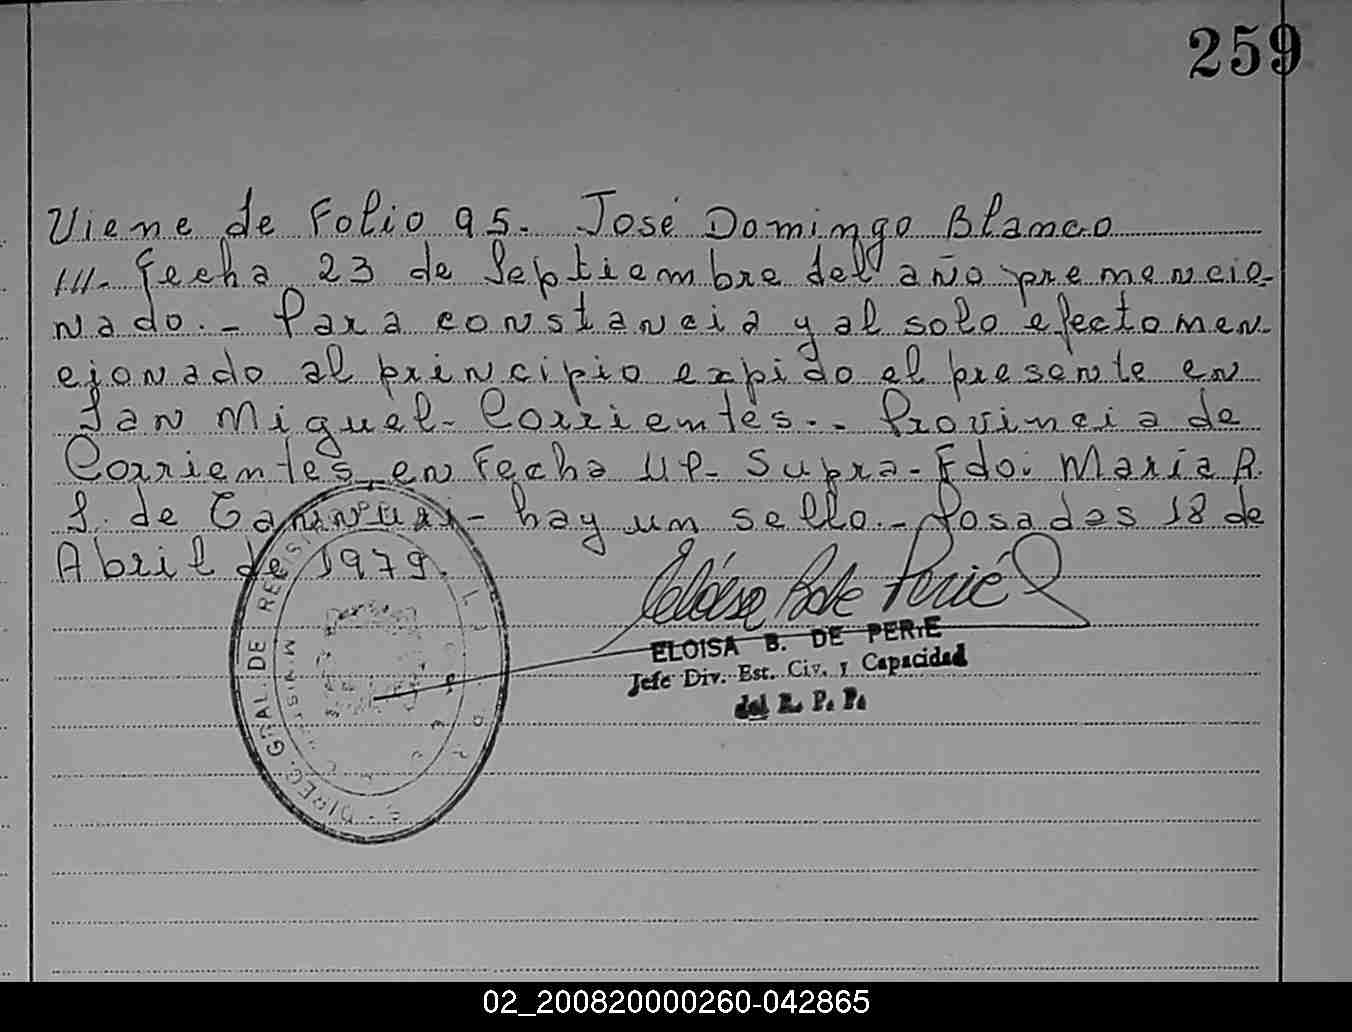 259
Viene de Folio 95. José Domingo Blanco
///. Fecha 23 de Septiembre del año premencio-
nado.- Para constancia y al solo efecto men-
cionado al principio expido el presente en
San Miguel- Corrientes.- Provincia de
Corrientes, en Fecha UP- Supra- Fdo: Maria R.
S. de - hay un sello.- Posadas 18 de
Abril de 1979.
ELOISA B. DE PERIE
Jefe Div. Est. Civ. y Capacidad
del R. P. P.
DIREC. GRAL. DE
02_200820000260-042865